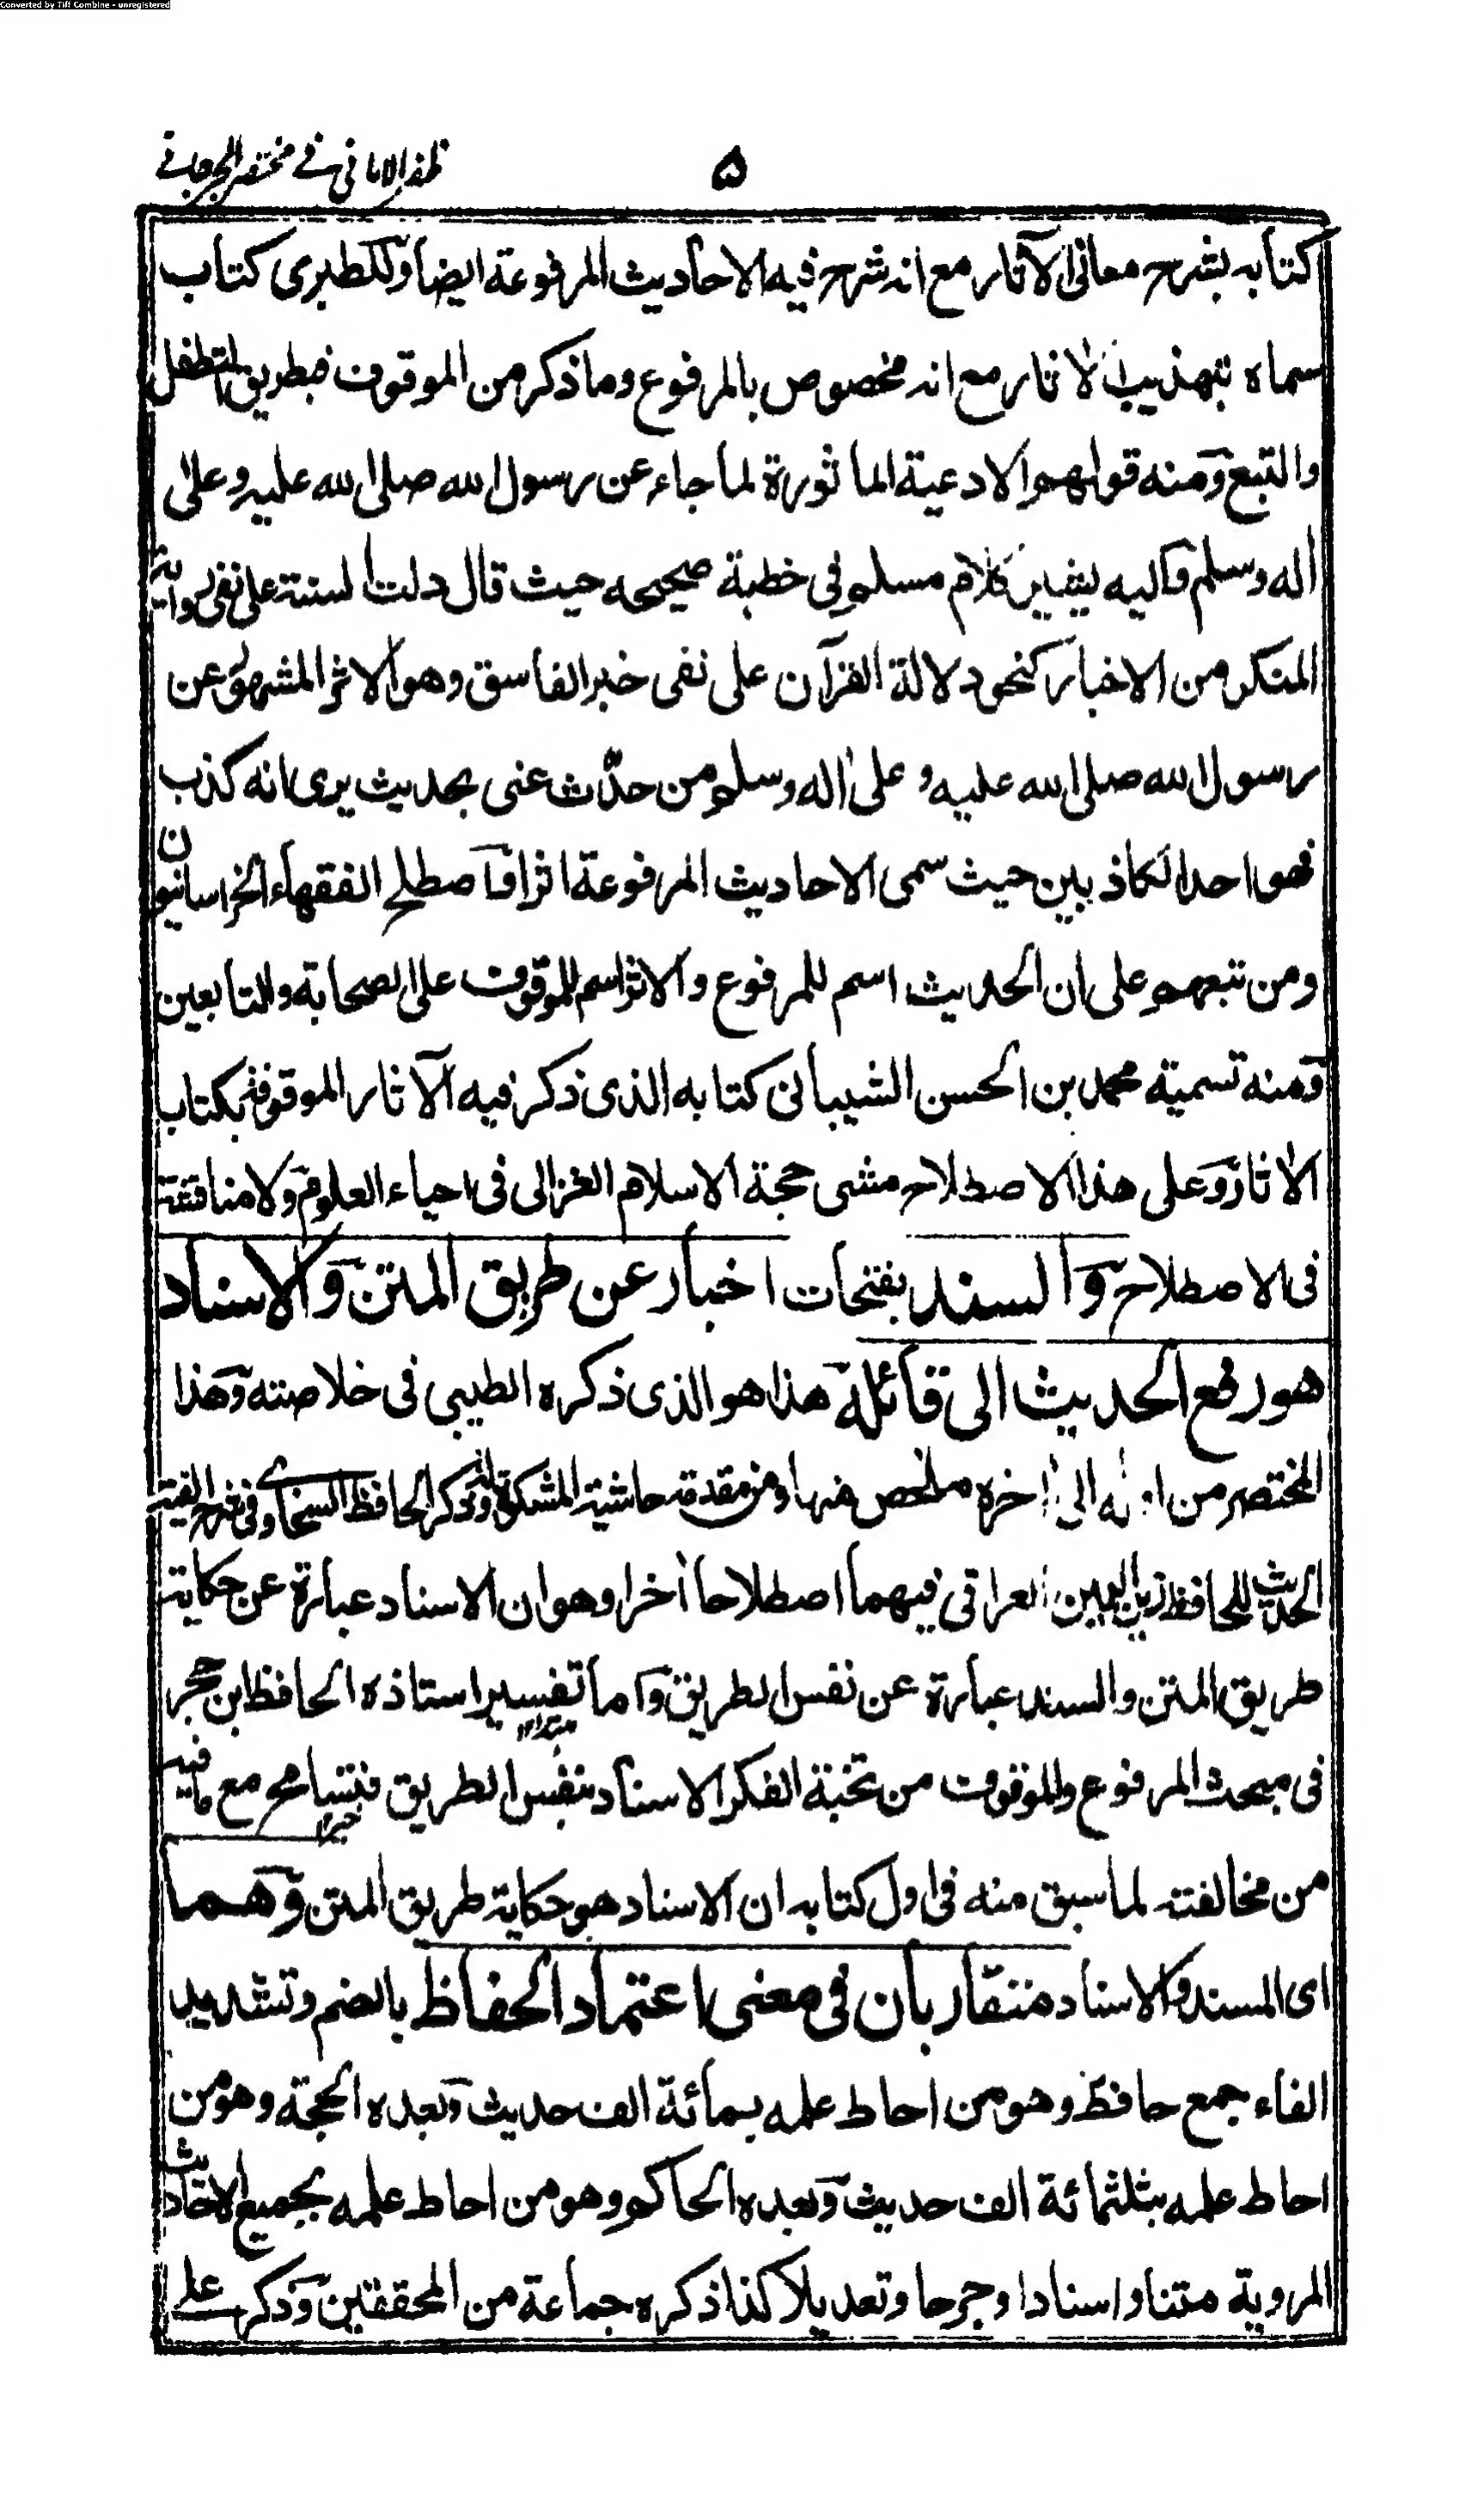 Converted by Tiff Combine - unregistered
ظفر الامانی فی مختصر الجرجانی
۵
كتابه بشرح معانی الآثار مع انه شرح فيه الاحاديث المرفوعة ايضا وللطبری كتاب
سماه بتهذيب الاثار مع انه مخصوص بالمرفوع وما ذكر من الموقوف فبطريق التطفل
والتبع ومنه قولهم الادعية الماثورة لما جاء عن رسول الله صلى الله عليه وعلى
اله وسلم واليه يشير كلام مسلم فی خطبة صحيحه حيث قال دلت السنة على نفی رواية
المنكر من الاخبار كنحو دلالة القرآن على نفی خبر الفاسق وهو الاثر المشهور عن
رسول الله صلى الله عليه وعلى اله وسلم من حدّث عنی بحديث يرى انه كذب
فهو احد الكاذبين حيث سمى الاحاديث المرفوعة اثرا واصطلح الفقهاء الخراسانيون
ومن تبعهم على ان الحديث اسم للمرفوع والاثر اسم للموقوف على الصحابة والتابعين
ومنه تسمية محمد بن الحسن الشيبانی كتابه الذی ذكر فيه الآثار الموقوفة بكتاب
الاثار وعلى هذا الاصطلاح مشى حجة الاسلام الغزالی فی احياء العلوم ولا مناقشة
فی الاصطلاح والسند بفتحات اخبار عن طريق المتن والاسناد
هو رفع الحديث الى قائله هذا هو الذی ذكره الطيبی فی خلاصته وهذا
المختصر من اوله الى اخره ملخص منها ومن مقدمة حاشية المشكوة له وذكر الحافظ السخاوی فی شرح الفية
الحديث للحافظ زين الدين العراقی فيهما اصطلاحا أخر وهو ان الاسناد عبارة عن حكاية
طريق المتن والسند عبارة عن نفس الطريق واما تفسير استاذه الحافظ ابن حجر
فی مبحث المرفوع والموقوف من نخبة الفكر الاسناد بنفس الطريق فتسامح مع ما فيه
من مخالفته لما سبق منه فی اول كتابه ان الاسناد هو حكاية طريق المتن وهما
ای المسند والاسناد متقاربان فی معنى اعتماد الحفاظ بالضم وتشديد
الفاء جمع حافظ وهو من احاط علمه بمائة الف حديث وبعده الحجة وهو من
احاط علمه بثلثمائة الف حديث وبعده الحاكم وهو من احاط علمه بجميع الاحاديث
المروية متنا واسنادا وجرحا وتعديلا كذا ذكره جماعة من المحققين وذكر علی